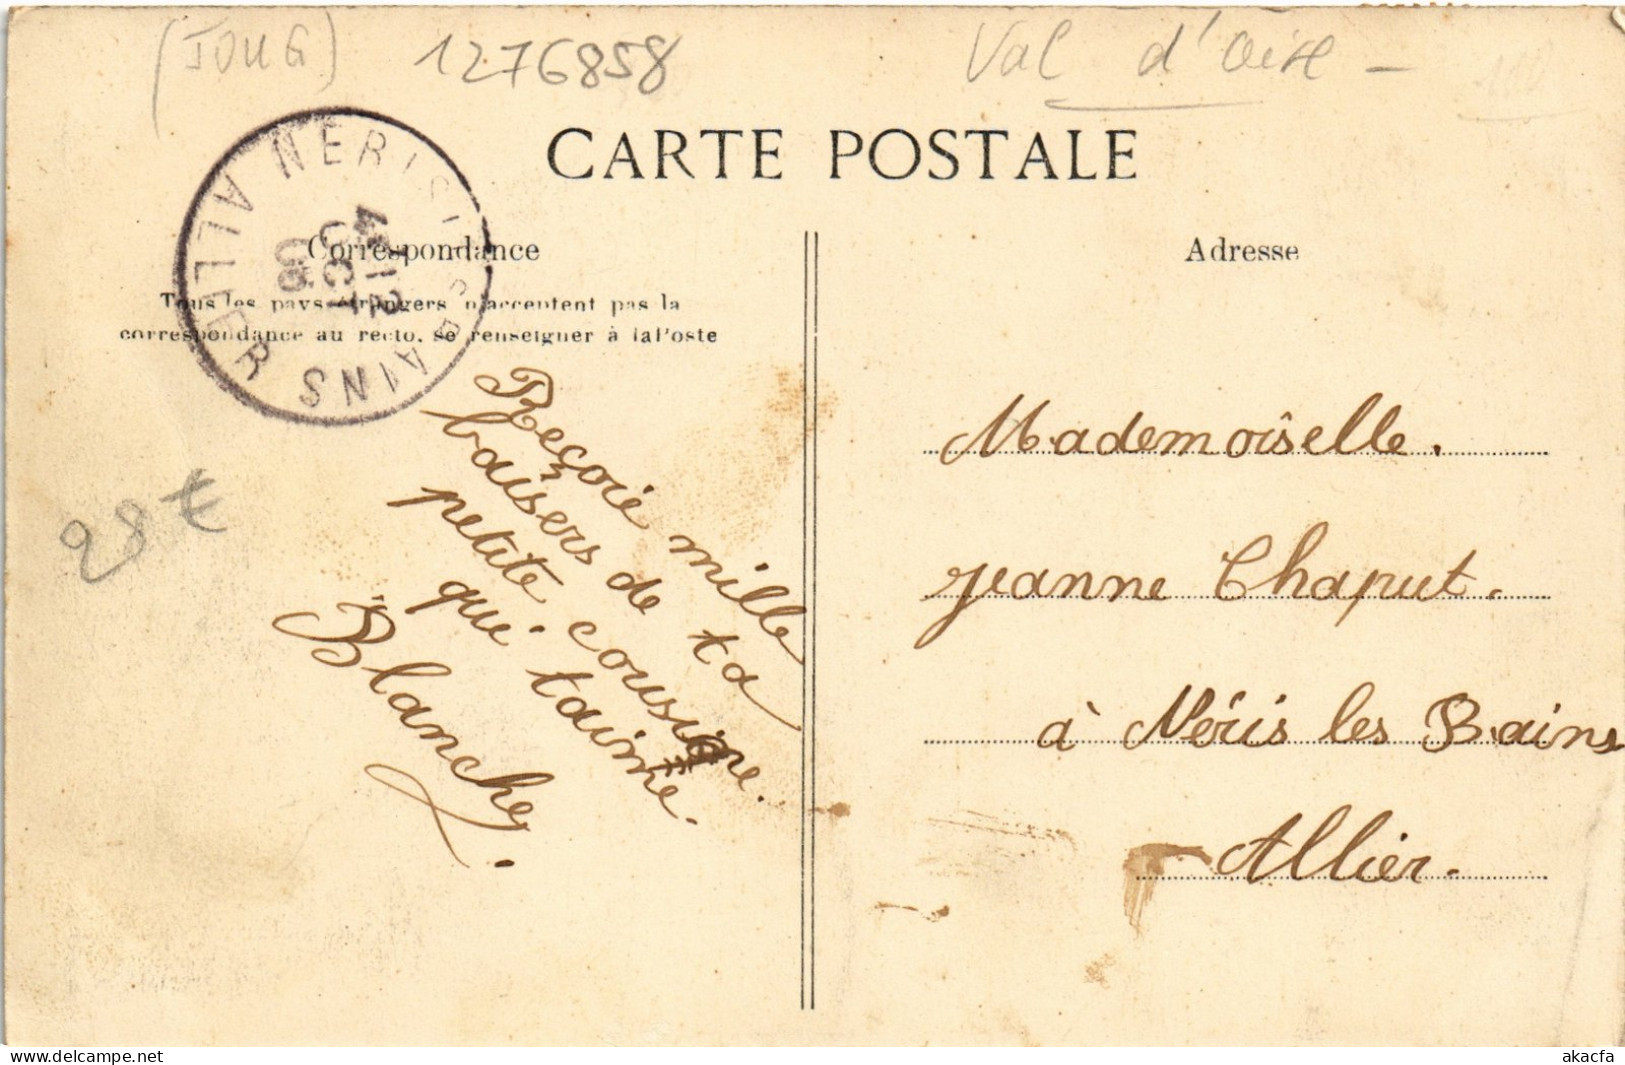 (JOUG)
1276858
Val d'Oise -
CARTE POSTALE
NERIS-LES-BAINS
ALLIER
OCT
Correspondance
Tous les pays étrangers n'acceptent pas la
correspondance au recto, se renseigner à la Poste
Reçoie mille
baisers de ta
petite cousine.
qui t'aime.
Blanche.
28 €
Adresse
Mademoiselle.
Jeanne Chaput.
à Néris les Bains
Allier.
www.delcampe.net
akacfa